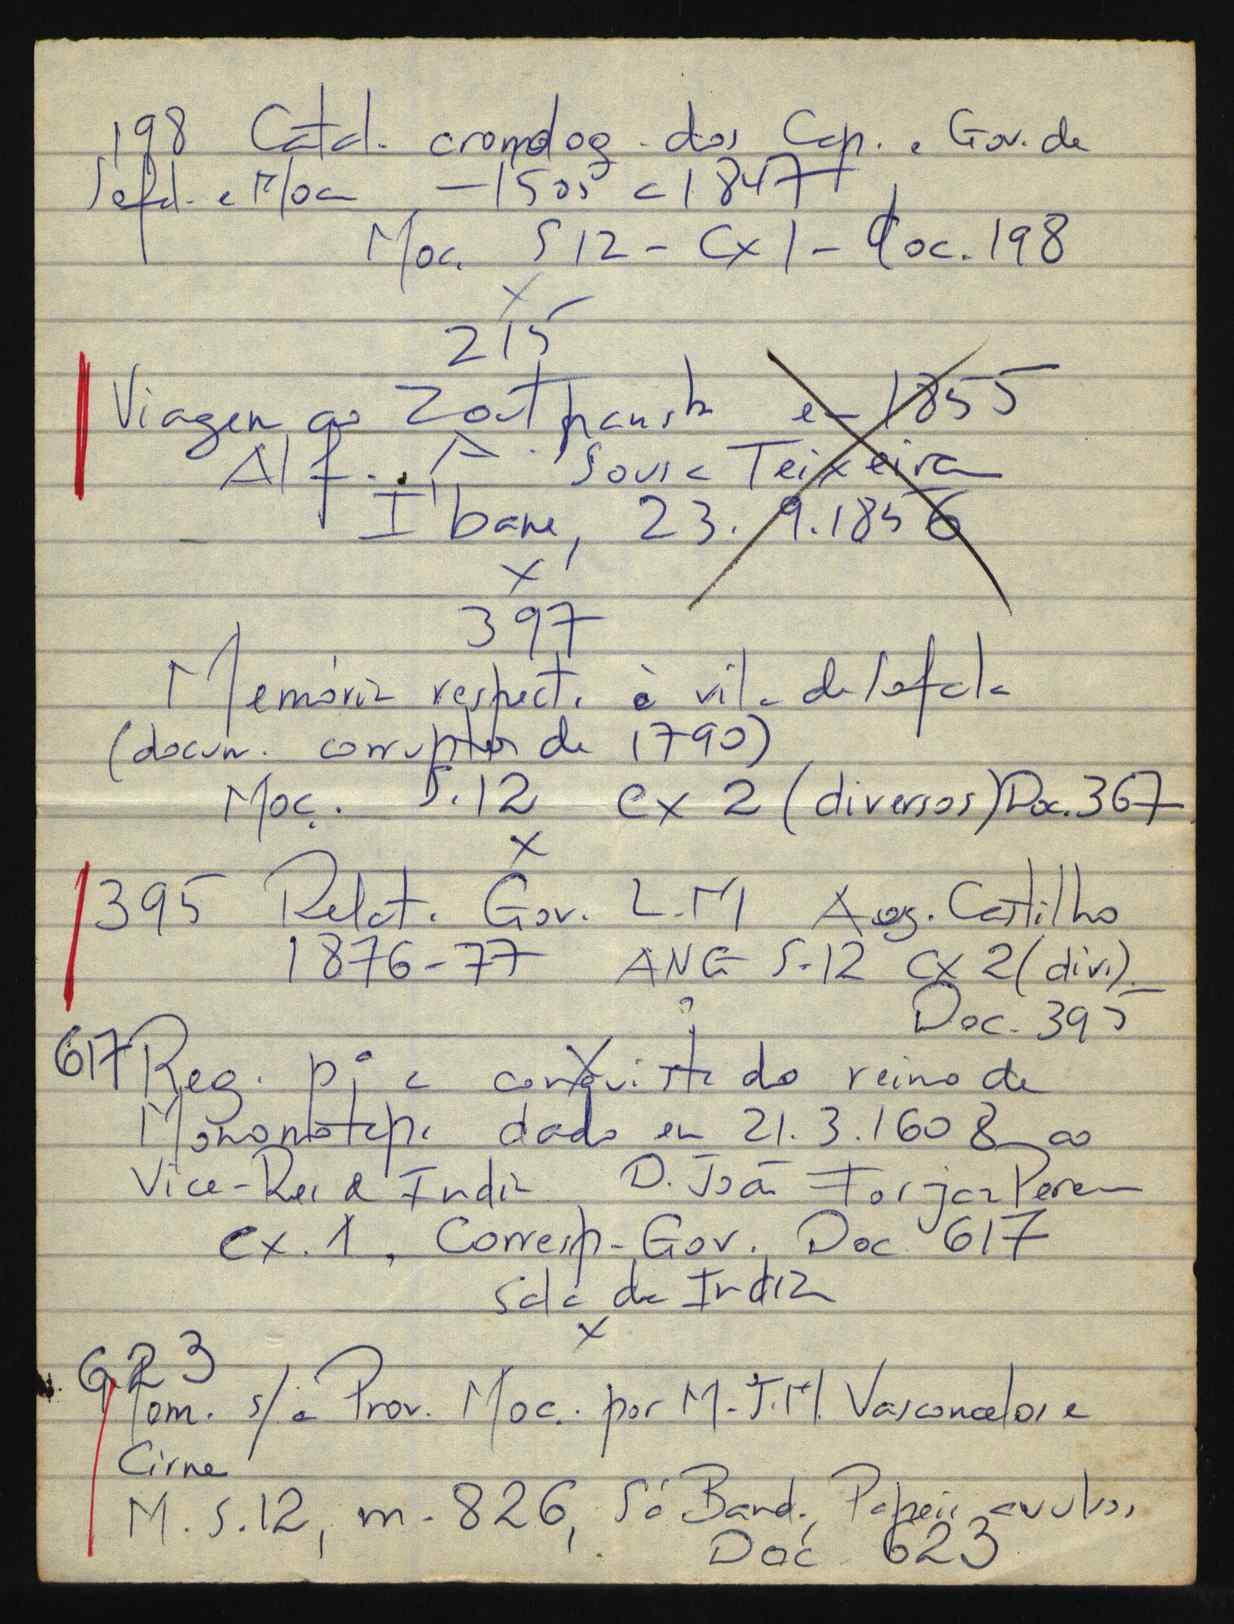 198 Catal. cronolog. dos Cap. e Gov. de
Sofal. e Moc — 1505 a 1847
Moc. S 12 - Cx 1 - doc. 198
x
215
Viagem ao Zoutpansb em 1855
Alf. Sousa Teixeira
I'bane, 23. 9. 1856
x
397
Memória respect. à vila de Sofala
(docum. corruptos de 1790)
Moç. S.12 cx 2 (diversos) Doc. 367
x
395 Relat. Gov. L.M Aug. Castilho
1876-77 ANG S-12 cx 2 (div.)
Doc. 395
617 Reg. pª a conquista do reino de
Monomotapa dado em 21.3.1608 ao
Vice-Rei da India D. João Forjaz Pereira
cx. 1, Corresp. Gov. Doc 617
sala da India
x
623
Mem. s/ a Prov. Moc. por M. J. M. Vasconcelos e
Cirne
M. S.12, m. 826, Sá Band., Papeis avulsos
Doc 623